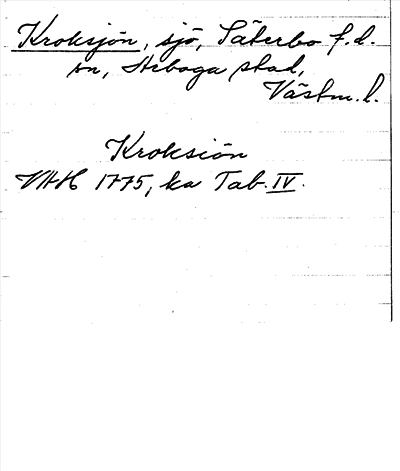 Kroksjön, sjö, Säterbo f.d.
sn, Arboga stad,
Västm.l.
Kroksiön
VHH 1775, ka Tab. IV.